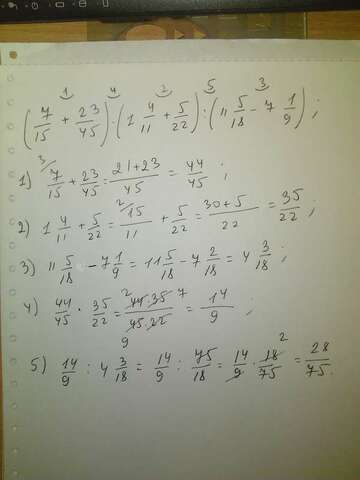 1 4 2 5 3
(7/15 + 23/45) · (1 4/11 + 5/22) : (11 5/18 - 7 1/9) ;
1) 3/ 7/15 + 23/45 = 21+23/45 = 44/45 ;
2) 1 4/11 + 5/22 = 2/ 15/11 + 5/22 = 30+5/22 = 35/22 ;
3) 11 5/18 - 7 1/9 = 11 5/18 - 7 2/18 = 4 3/18 ;
4) 44/45 · 35/22 = 2 44·35 7/45·22 9 = 14/9 ;
5) 14/9 : 4 3/18 = 14/9 : 75/18 = 14/9 · 18 2/75 = 28/75 .